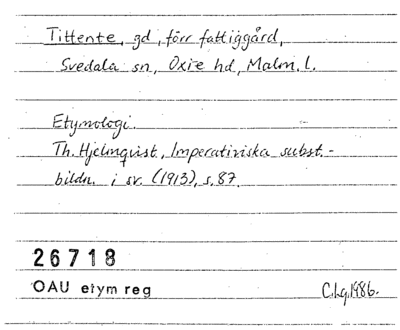 Tittente, gd, förr fattiggård,
Svedala sn, Oxie hd, Malm. l.
Etymologi.
Th. Hjelmqvist, Imperativiska subst.-
bildn. i sv. (1913), s. 87.
26718
OAU etym reg
C.Lg. 1986.